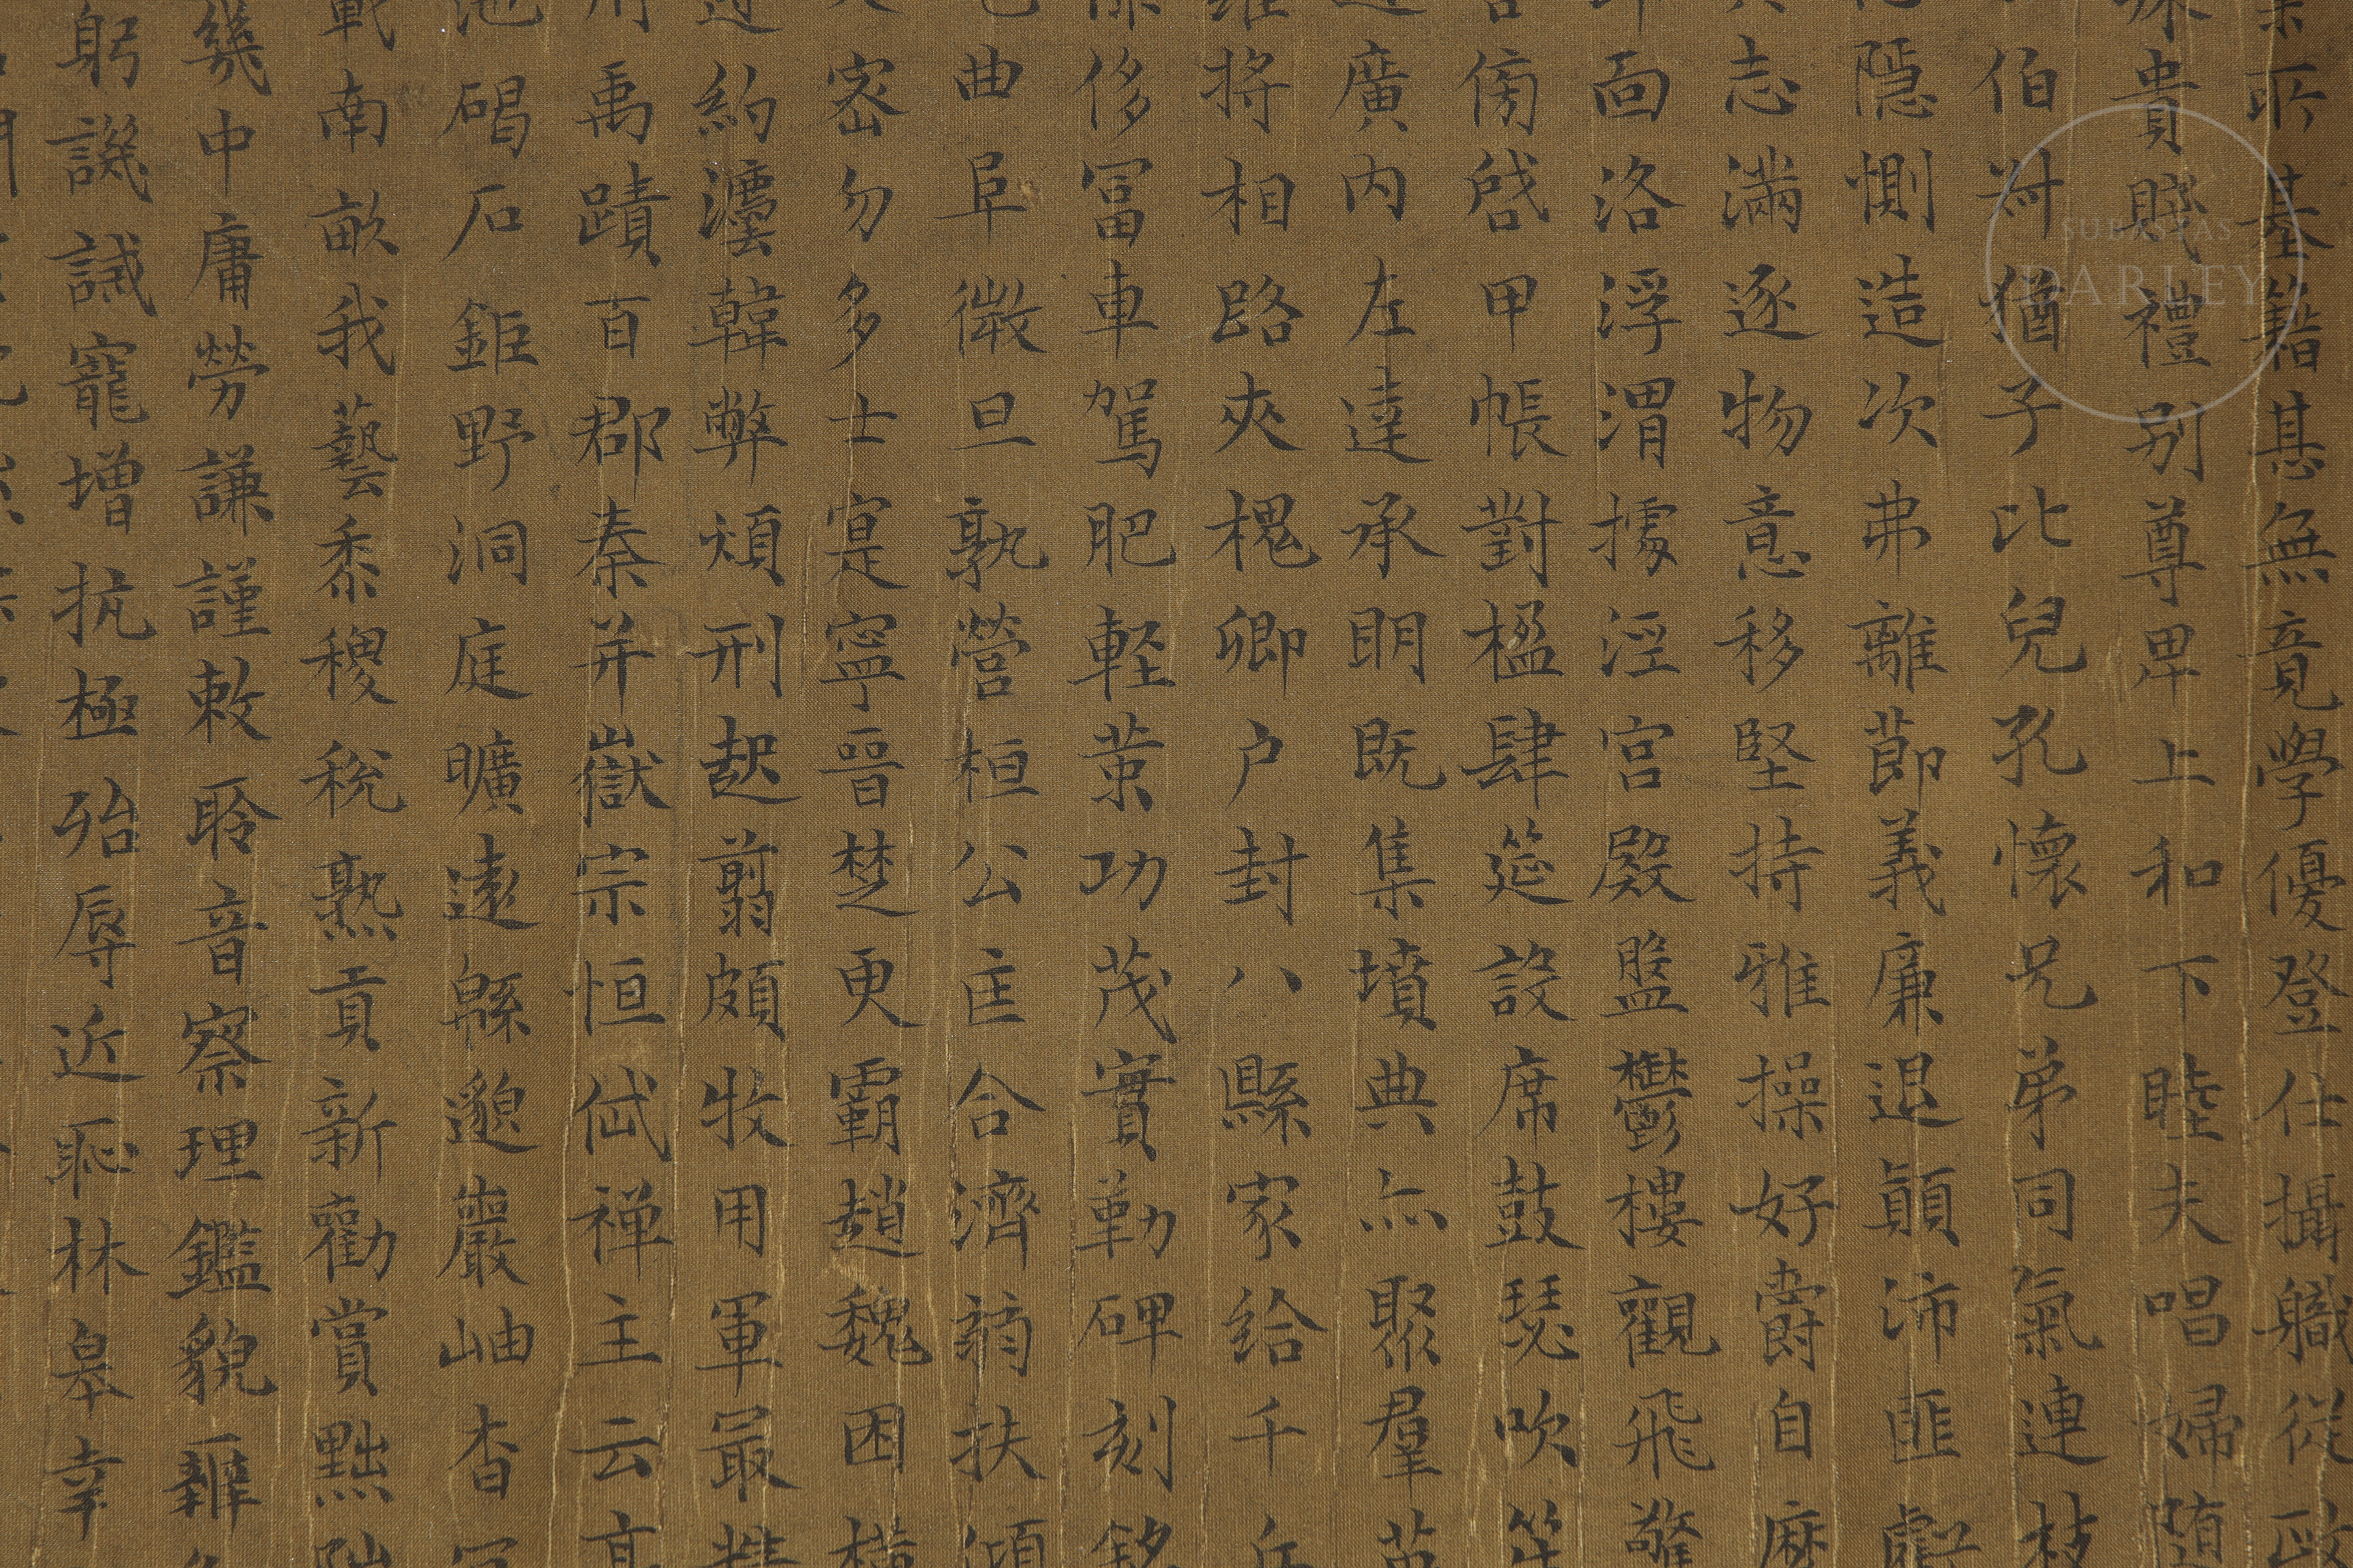 所基籍甚無竟學優登仕攝職從政
殊貴賤禮別尊卑上和下睦夫唱婦隨
伯叔猶子比兒孔懷兄弟同氣連枝
隱惻造次弗離節義廉退顛沛匪虧
志滿逐物意移堅持雅操好爵自縻
面洛浮渭據涇宮殿盤鬱樓觀飛驚
傍啓甲帳對楹肆筵設席鼓瑟吹笙
廣內左達承明既集墳典亦聚羣英
將相路夾槐卿户封八縣家給千兵
侈富車駕肥輕策功茂實勒碑刻銘
曲阜微旦孰營桓公匡合濟弱扶傾
密勿多士寔寧晉楚更霸趙魏困橫
約灋韓弊煩刑起翦頗牧用軍最精
禹蹟百郡秦并嶽宗恒岱禪主云亭
池碣石鉅野洞庭曠遠緜邈巖岫杳冥
載南畝我藝黍稷稅熟貢新勸賞黜陟
幾中庸勞謙謹敕聆音察理鑑貌辨
躬譏誡寵增抗極殆辱近恥林皋幸
SUBASTAS
DARLEY